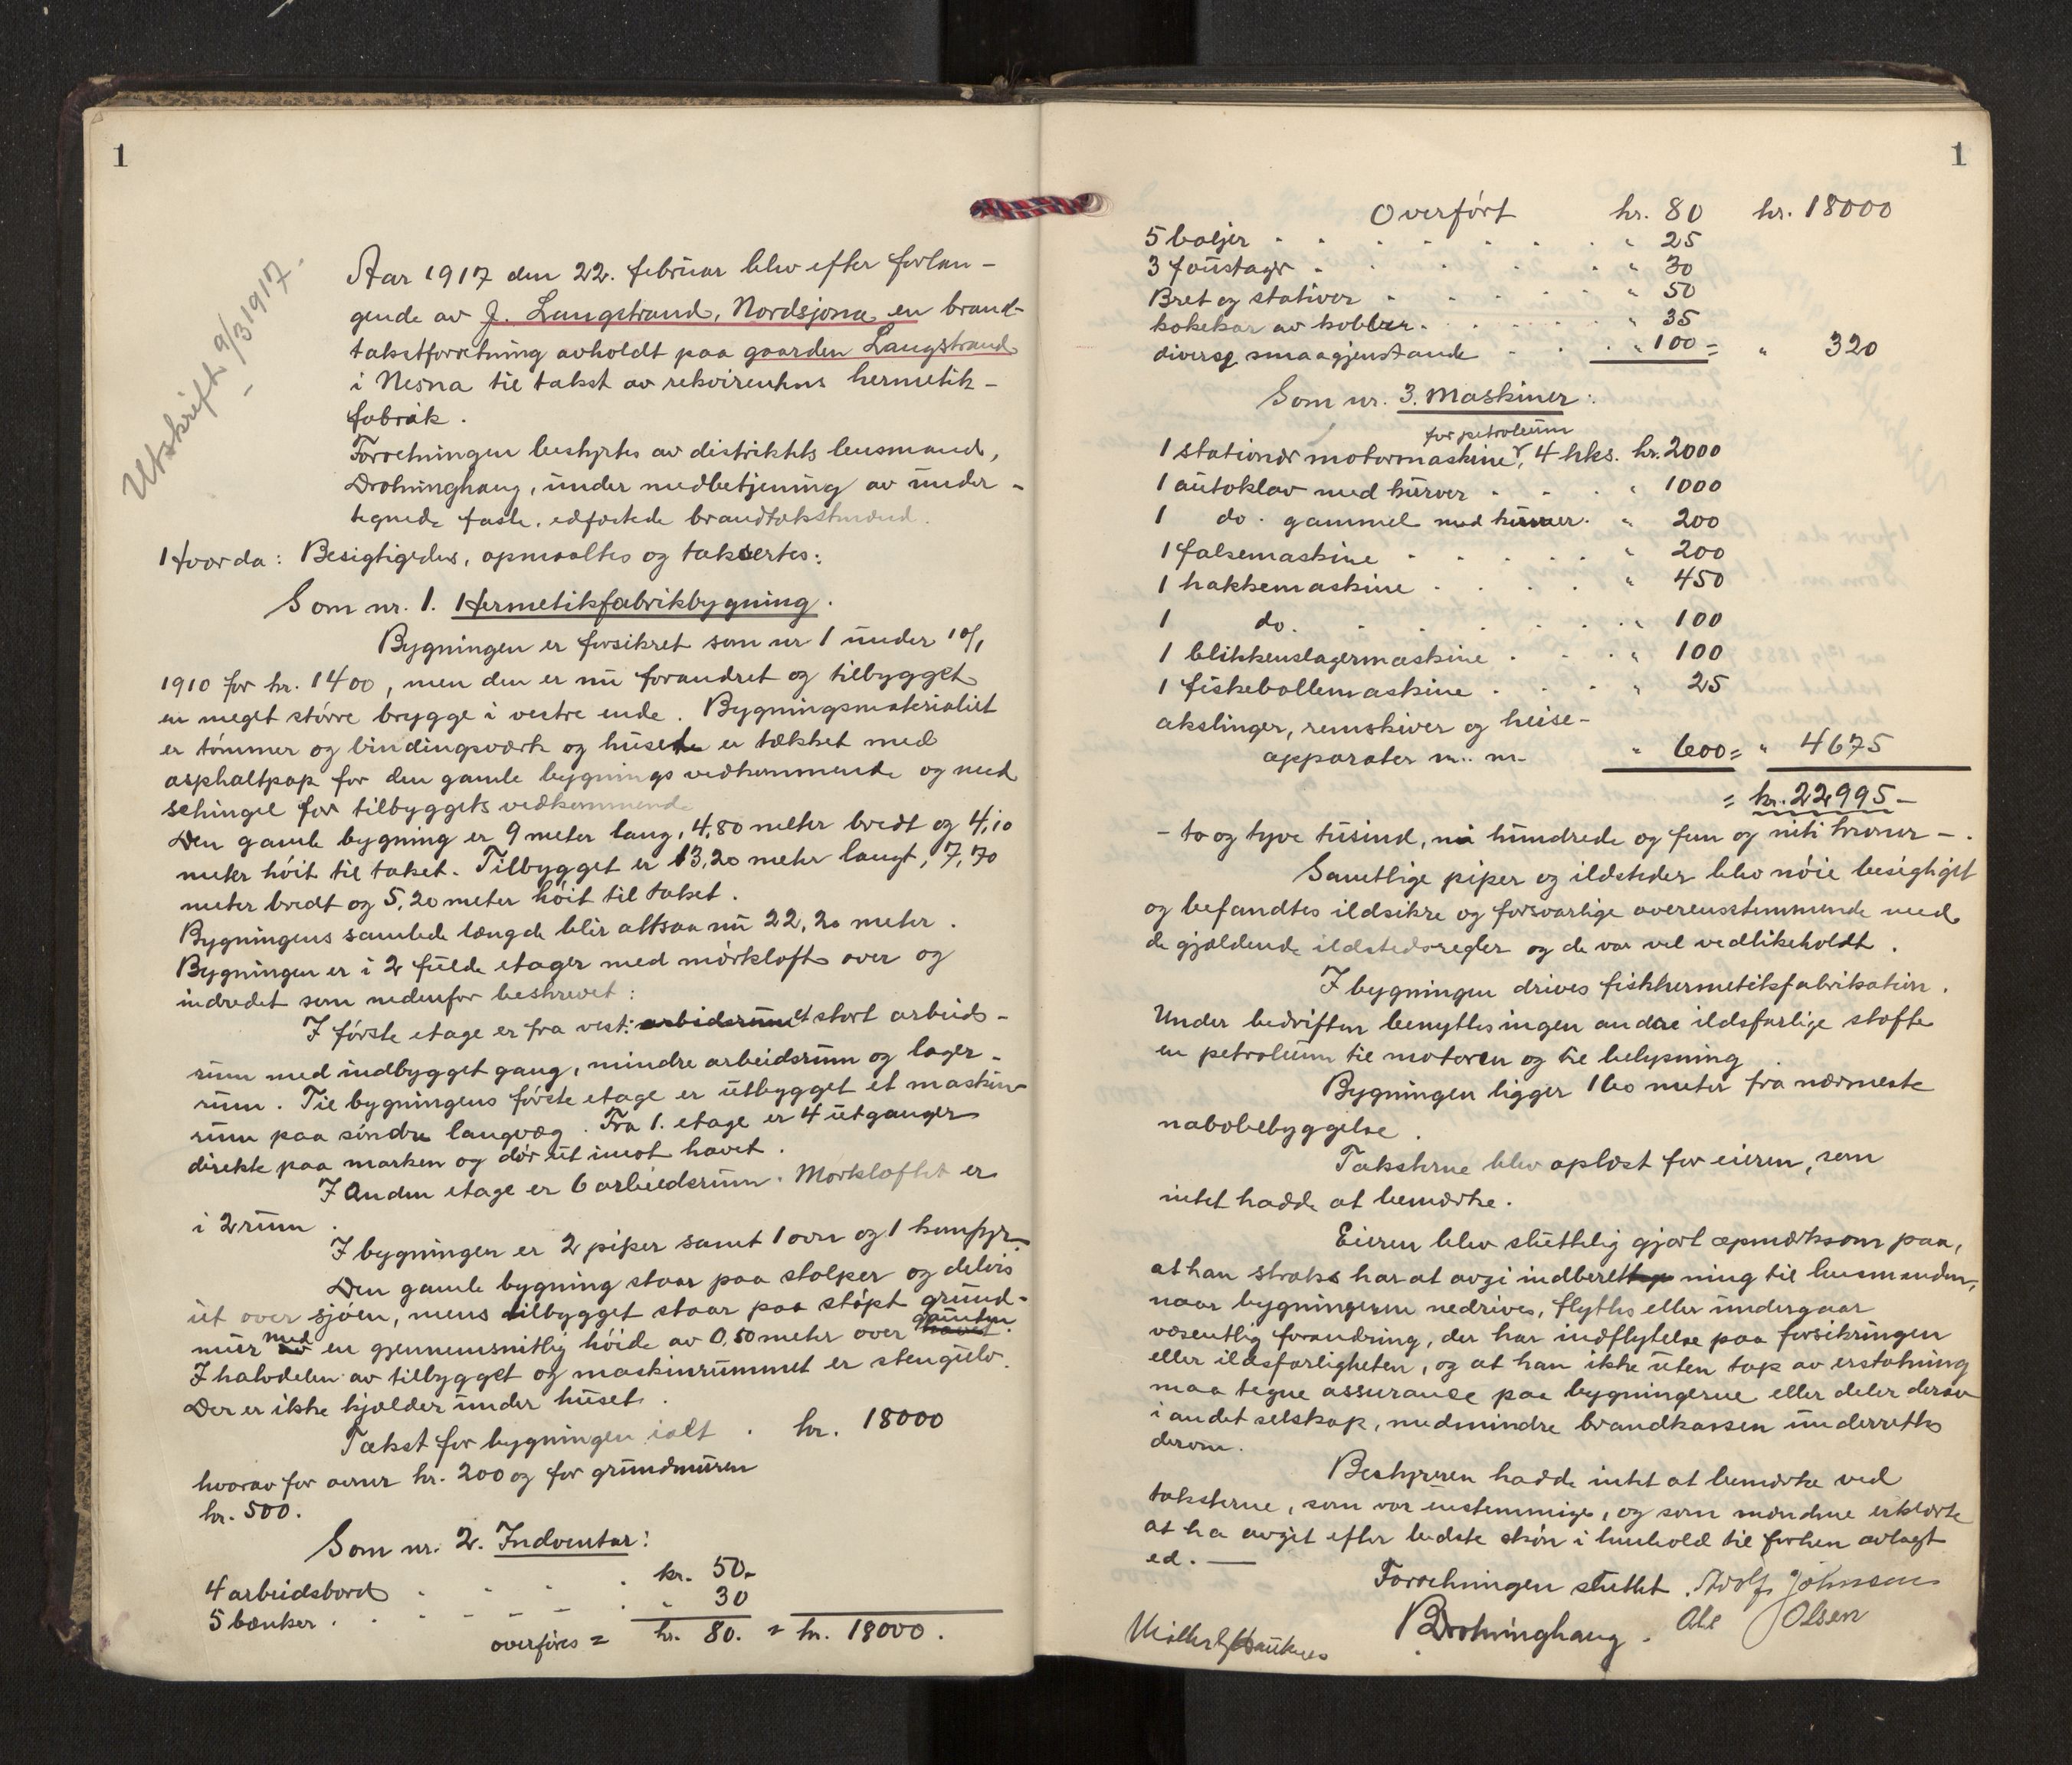 1
Utskrift 9/3 1917.
Aar 1917 den 22. februar blev efter forlan-
gende av J. Langstrand, Nordsjona en brand-
takstforretning avholdt paa gaarden Langstrand
i Nesna til takst av rekvirentens hermetik-
fabrik.
Forretningen bestyrtes av distriktets lensmand,
Drotninghaug, under medbetjening av under-
tegnede faste, edfæstede brandtakstmænd.
Hvorda: Besigtigedes, opmaaltes og taksertes:
Som nr. 1. Hermetikfabrikbygning.
Bygningen er forsikret som nr 1 under 10/1
1910 for kr. 1400, men den er nu forandret og tilbygget
en meget större brygge i vestre ende. Bygningsmaterialiet
er tömmer og bindingsværk og huset er tækket med
asphaltpap for den gamle bygnings vedkommende og med
schingel for tilbyggets vedkommende
Den gamle bygning er 9 meter lang, 4,80 meter bredt og 4,10
meter höit til taket. Tilbygget er 13,20 meter langt, 7,70
meter bredt og 5,20 meter höit til taket.
Bygningens samlede længde blir altsaa nu 22,20 meter.
Bygningen er i 2 fulde etager med mörkloft over og
indredet som nedenfor beskrevet:
I förste etage er fra vest: arbeidsrum et stort arbeids-
rum med indbygget gang, mindre arbeidsrum og lager-
rum. Til bygningens förste etage er utbygget et maskin-
rum paa söndre langvæg. Fra 1. etage er 4 utganger
direkte paa marken og dör ut imot havet.
I Anden etage er 6 arbeidsrum. Mörkloftet er
i 2 rum.
I bygningen er 2 piper samt 1 ovn og 1 komfyr.
Den gamle bygning staar paa stolper og delvis
ut over sjöen, mens tilbygget staar paa stöpt grund-
mur med en gjennemsnitlig höide av 0,50 meter over grunden.
I halvdelen av tilbygget og maskinrummet er stengulv.
Der er ikke kjælder under huset.
Takst for bygningen ialt . kr. 18000
hvorav for ovner kr. 200 og for grundmuren
kr. 500.
Som nr. 2. Indventar:
4 arbeidsbord . . . . kr. 50.-
5 bænker . . . . . " 30
overföres = kr. 80. = kr. 18000.
1
Overfört kr. 80 kr. 18000
5 baljer . . . . . . . " 25
3 foustager . . . . . . " 30
Bret og stativer . . . . . " 50
kokekar av kobber . . . . . " 35
diverse smaagjenstande . . . " 100 = " 320
Som nr. 3. Maskiner:
for petroleum
1 stationær motormaskine, 4 hks. kr. 2000
1 autoklav med kurver . . . " 1000
1 do. gammel med kurver. " 200
1 falsemaskine . . . . . " 200
1 hakkemaskine . . . . " 450
1 do. . . . . . " 100
1 blikkenslagermaskine . . . " 100
1 fiskebollemaskine . . . . " 25
akslinger, remskiver og heise-
apparater m. m. " 600 = " 4675
= kr. 22995 -
- to og tyve tusind, ni hundrede og fem og niti kroner -.
Samtlige piper og ildsteder blev nöie besigtiget
og befandtes ildsikre og forsvarlige overensstemmende med
de gjældende ildstedsregler og de var vel vedlikeholdt.
I bygningen drives fiskhermetikfabrikation.
Under bedriften benyttes ingen andre ildsfarlige stoffe
en petroleum til motoren og til belysning.
Bygningen ligger 160 meter fra nærmeste
nabobebyggelse.
Taksterne blev oplæst for eieren, som
intet hadde at bemærke.
Eieren blev sluttelig gjort opmærksom paa,
at han straks har at avgi indberetning til lensmanden,
naar bygningerne nedrives, flyttes eller undergaar
væsentlig forandring, der har indflytelse paa forsikringen
eller ildsfarligheten, og at han ikke uten tap av erstatning
maa tegne assurance paa bygningerne eller deler derav
i andet selskap, medmindre brandkassen underrettes
derom.
Bestyreren hadde intet at bemærke ved
taksterne, som var enstemmige, og som mændene erklærte
at ha avgit efter bedste skön i henhold til forhen avlagt
ed. —
Forretningen sluttet. Adolf Johnsen
Drotninghaug. Ole Olsen